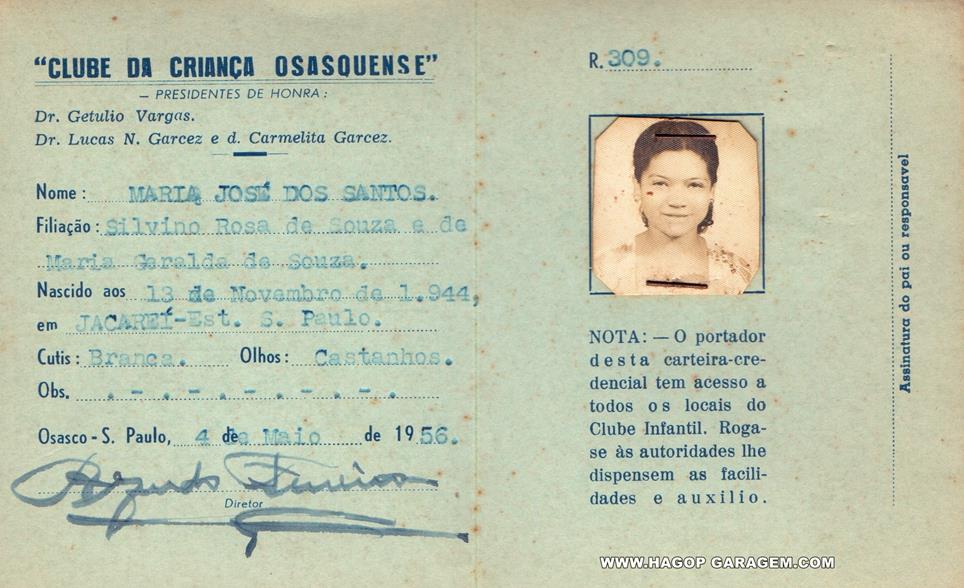 "CLUBE DA CRIANÇA OSASQUENSE"
— PRESIDENTES DE HONRA :
Dr. Getulio Vargas.
Dr. Lucas N. Garcez e d. Carmelita Garcez.
Nome : MARIA JOSÉ DOS SANTOS.
Filiação : Silvino Rosa de Souza e de
Maria Geralda de Souza.
Nascido aos 13 de Novembro de 1.944,
em JACAREÍ-Est. S. Paulo.
Cutis : Branca. Olhos : Castanhos.
Obs. . - . - . - . - . - .
Osasco - S. Paulo, 4 de Maio de 1956.
Diretor
R. 309.
NOTA: — O portador
desta carteira-cre-
dencial tem acesso a
todos os locais do
Clube Infantil. Roga-
se às autoridades lhe
dispensem as facili-
dades e auxilio.
Assinatura do pai ou responsavel
WWW.HAGOP GARAGEM.COM